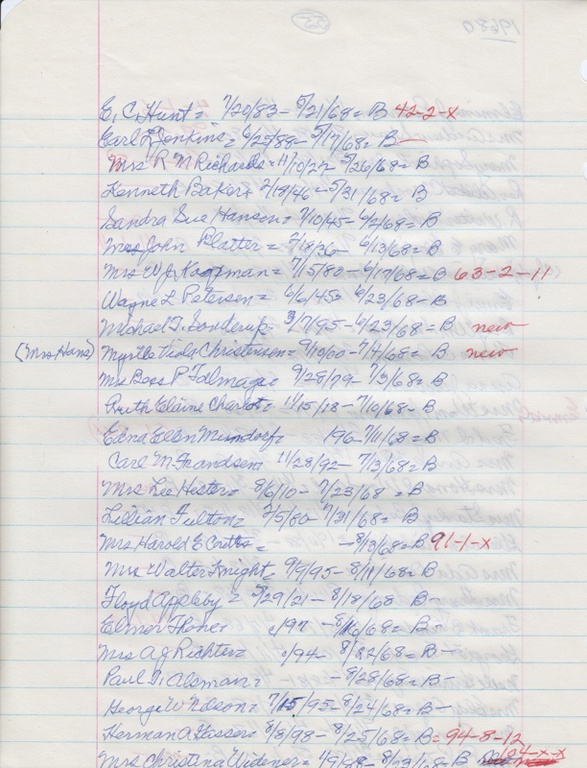 E. C. Hunt = 7/20/83 - 5/21/68 = B 42-2-X
Earl L Jenkins = 6/25/88 - 5/17/68 = B -
Mrs R M Richards = 11/10/27 - 5/26/68 = B
Kenneth Baker = 2/18/46 - 5/31/68 = B
Sandra Sue Hansen = 7/10/45 - 6/2/68 = B
Mrs John Platter = 2/18/36 - 6/13/68 = B
Mrs W J Koopman = 7/15/80 - 6/17/68 = B 63-2-11
Wayne L Petersen = 6/6/45 = 6/23/68 - B
Michael T. Sonderup 3/7/95 - 6/23/68 = B new
(Mrs Hans) Myrtle Viola Christensen = 9/10/00 - 7/4/68 = B new
Mrs Bess P Talmage = 9/28/79 - 7/3/68 = B
Ruth Elaine = 11/15/18 - 7/10/68 - B
Edna Ellen 196- 7/11/68 = B
Carl M. Frandsen 11/28/92 - 7/13/68 = B
Mrs Lee Hester = 8/6/10 - 7/23/68 = B
Lillian Fulton = 2/5/80 - 7/31/68 = B
Mrs Harold E = - 8/13/68 = B 91-1-X
Mrs Walter Knight = 9/9/95 - 8/11/68 = B
Floyd Appleby = 5/29/21 - 8/18/68 B -
Elmer /97 - 8/16/68 = B -
Mrs A J Richter = /94 - 8/22/68 = B -
Paul = - 8/28/68 = B -
George W Nelson = 7/15/95 - 8/24/68 = B -
Herman A = 8/8/98 - 8/25/68 = B = 94-8-12
Mrs Christina Widener = B 104-X-X